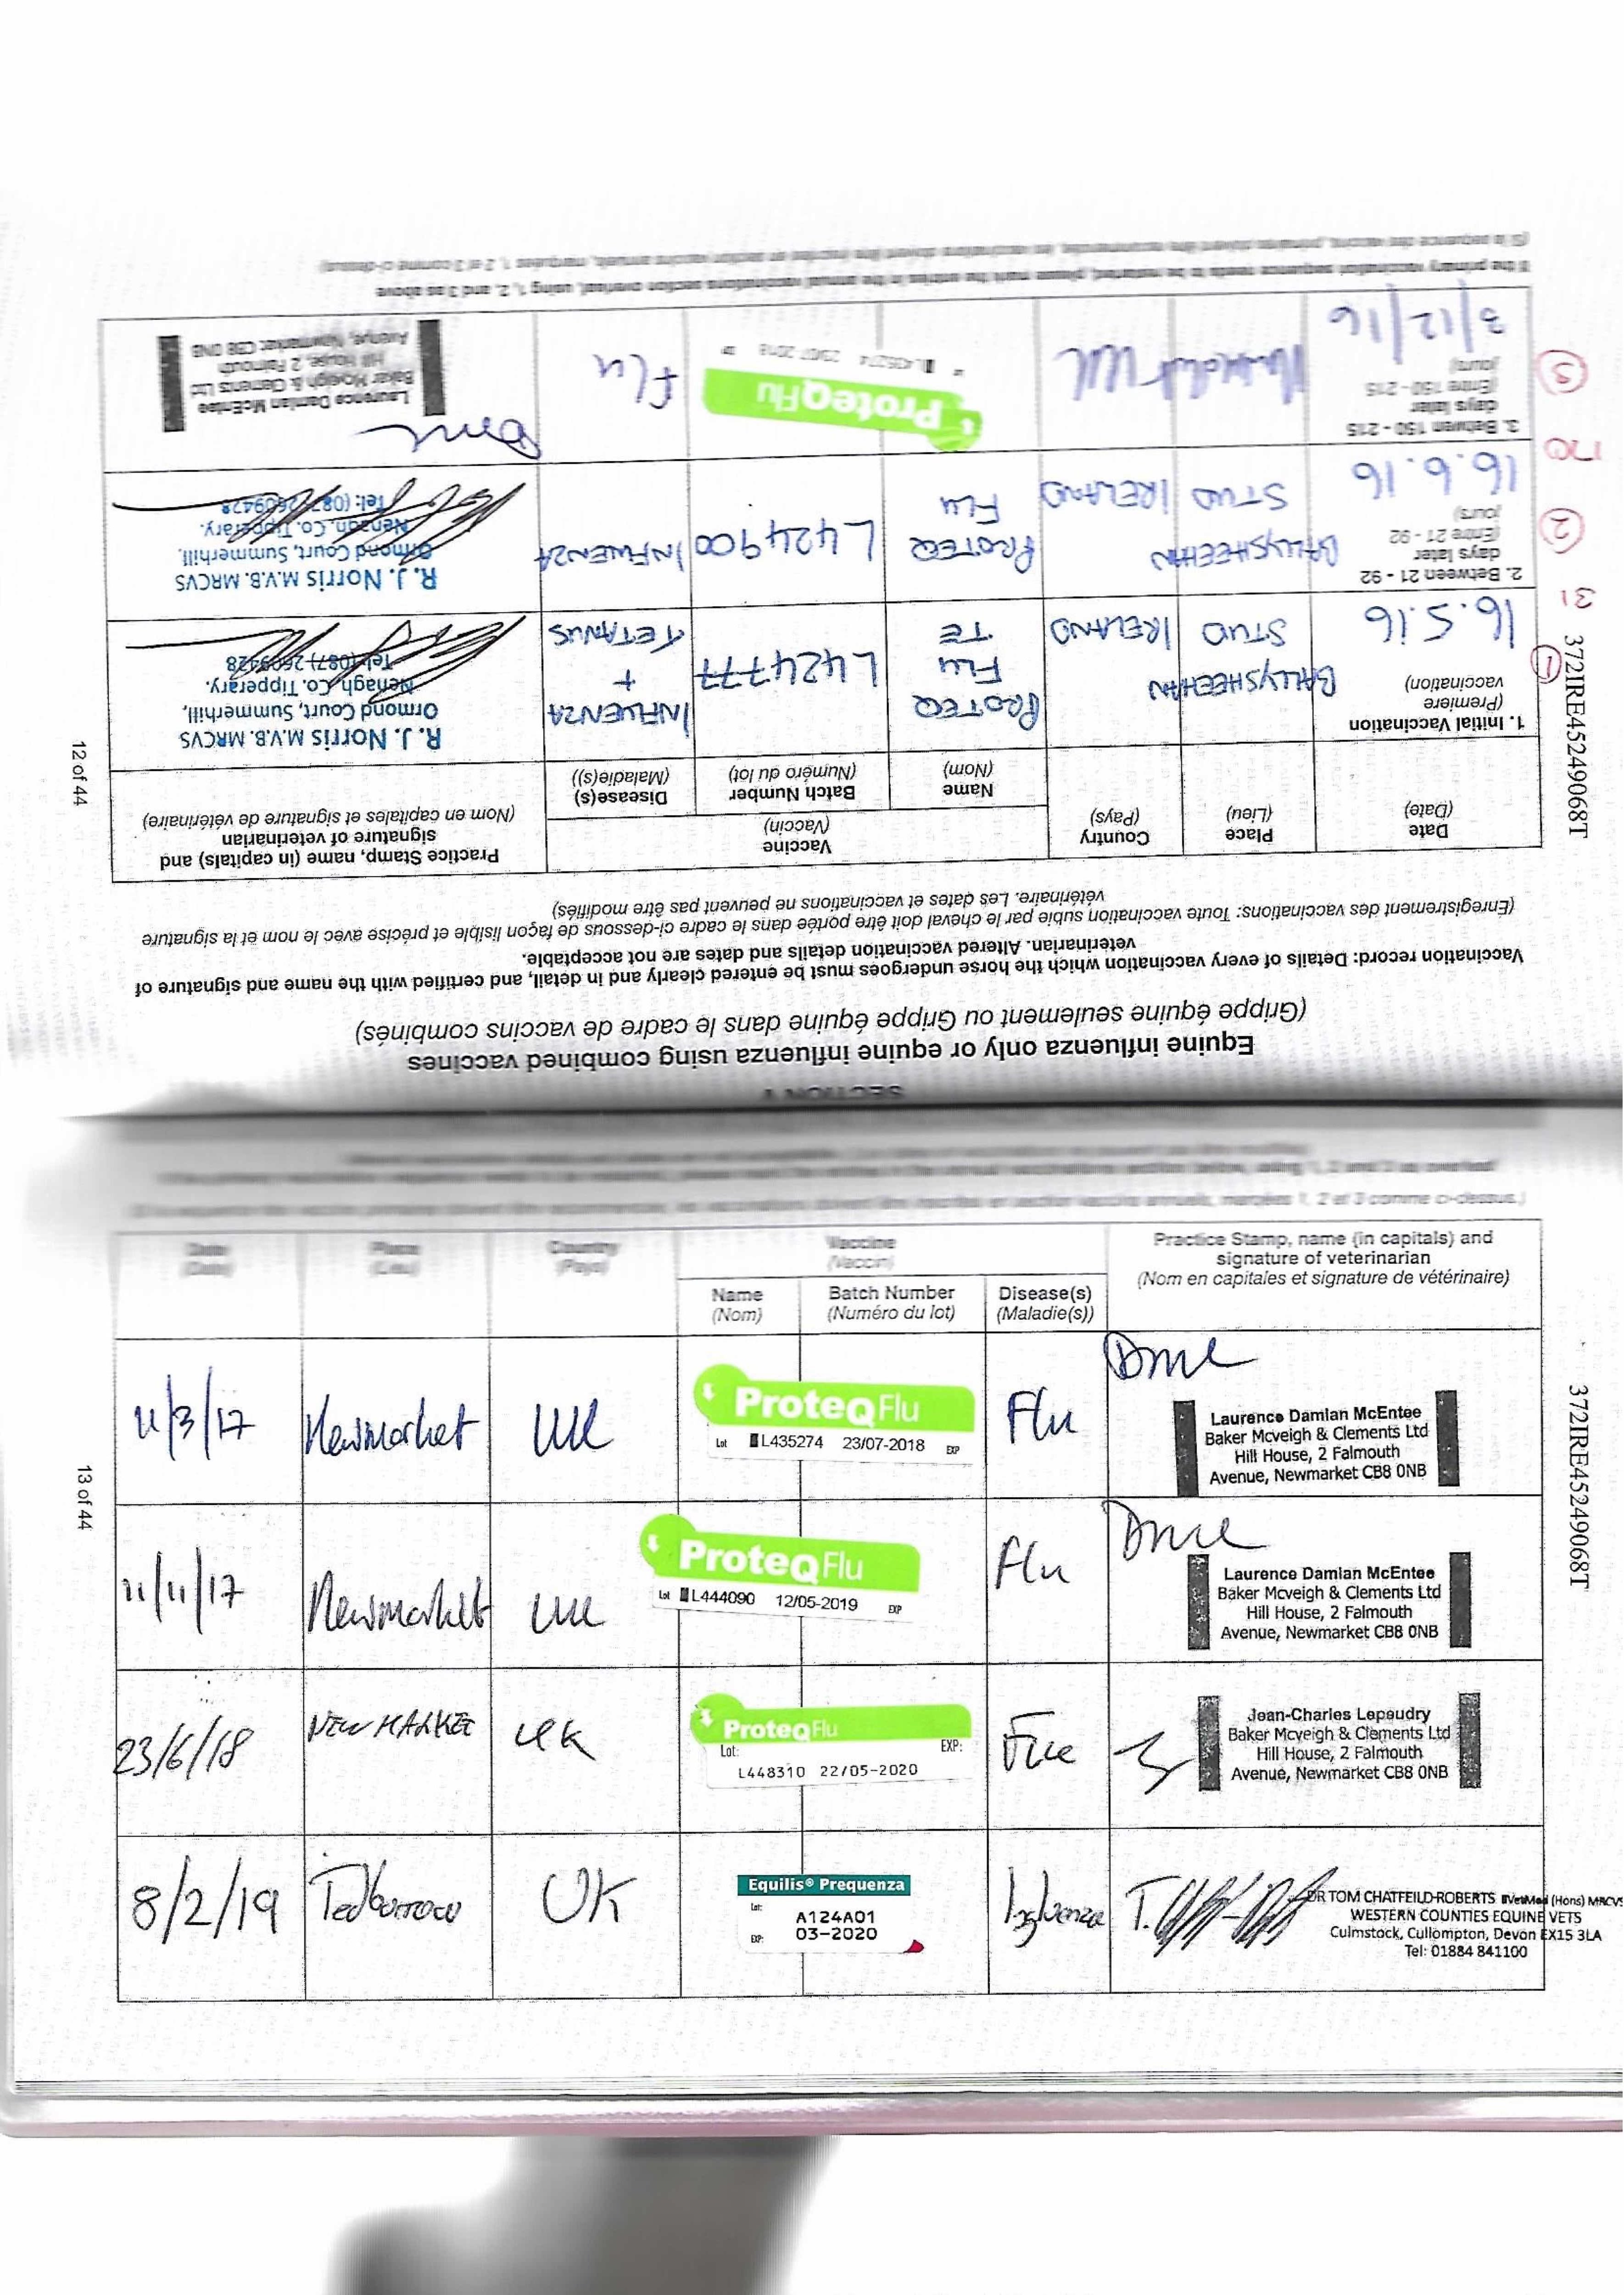 12 of 44
SECTION V
Equine influenza only or equine influenza using combined vaccines
(Grippe équine seulement ou Grippe équine dans le cadre de vaccins combinés)
Vaccination record: Details of every vaccination which the horse undergoes must be entered clearly and in detail, and certified with the name and signature of
veterinarian. Altered vaccination details and dates are not acceptable.
(Enregistrement des vaccinations: Toute vaccination subie par le cheval doit être portée dans le cadre ci-dessous de façon lisible et précise avec le nom et la signature
vétérinaire. Les dates et vaccinations ne peuvent pas être modifiés)
Date
(Date)
Place
(Lieu)
Country
(Pays)
Vaccine
(Vaccin)
Name
(Nom)
Batch Number
(Numéro du lot)
Disease(s)
(Maladie(s))
Practice Stamp, name (in capitals) and
signature of veterinarian
(Nom en capitales et signature de vétérinaire)
372IRE45249068T
1
1. Initial Vaccination
(Première
vaccination)
16.5.16
BALLYSHEEHAN
STUD
IRELAND
PROTEQ
FLU
TE
L424777
INFLUENZA
+
TETANUS
R. J. Norris M.V.B. MRCVS
Ormond Court, Summerhill,
Nenagh, Co. Tipperary.
Tel: (087) 2609428
31
2
2. Between 21 - 92
days later
(Entre 21 - 92
jours)
16.6.16
BALLYSHEEHAN
STUD
IRELAND
PROTEQ
FLU
L424900
INFLUENZA
R. J. Norris M.V.B. MRCVS
Ormond Court, Summerhill,
Nenagh, Co. Tipperary.
Tel: (087) 2609428
170
3. Betwen 150 - 215
days later
(Entre 150 - 215
jours)
3/12/16
Newmarket
UK
ProteqFlu
L435274 23/07 2018
Flu
Laurence Damian McEntee
Baker Mcveigh & Clements Ltd
Hill House, 2 Falmouth
Avenue, Newmarket CB8 0NB
If the primary vaccination sequence needs to be restarted, please mark the entries in the annual vaccinations section overleaf, using 1, 2 and 3 as above
(Si la sequence des vaccins primaires doivent être recommencée, les vaccinations doivent être inscrites en section vaccins annuels, marquées 1, 2 et 3 comme ci-dessus)
13 of 44
372IRE45249068T
Date
(Date)
Place
(Lieu)
Country
(Pays)
Vaccine
(Vaccin)
Name
(Nom)
Batch Number
(Numéro du lot)
Disease(s)
(Maladie(s))
Practice Stamp, name (in capitals) and
signature of veterinarian
(Nom en capitales et signature de vétérinaire)
11/3/17
Newmarket
UK
ProteqFlu
Lot L435274 23/07-2018 EXP
Flu
Laurence Damian McEntee
Baker Mcveigh & Clements Ltd
Hill House, 2 Falmouth
Avenue, Newmarket CB8 0NB
11/11/17
Newmarket
UK
ProteqFlu
Lot L444090 12/05-2019 EXP
Flu
Laurence Damian McEntee
Baker Mcveigh & Clements Ltd
Hill House, 2 Falmouth
Avenue, Newmarket CB8 0NB
23/6/18
NEWMARKET
UK
ProteqFlu
Lot: EXP:
L448310 22/05-2020
Flue
Jean-Charles Lepeudry
Baker Mcveigh & Clements Ltd
Hill House, 2 Falmouth
Avenue, Newmarket CB8 0NB
8/2/19
UK
Equilis® Prequenza
Lot: A124A01
EXP: 03-2020
Influenza
DR TOM CHATFEILD-ROBERTS BVetMed (Hons) MRCVS
WESTERN COUNTIES EQUINE VETS
Culmstock, Cullompton, Devon EX15 3LA
Tel: 01884 841100